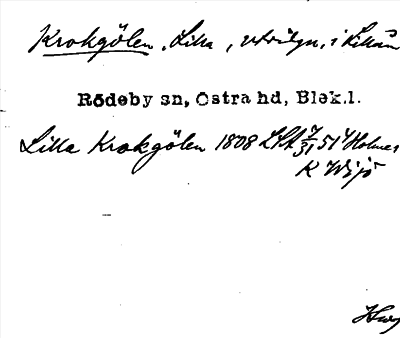 Krokgölen, Lilla, utridgn. i Lillån
Rödeby sn, Östra hd, Blek.l.
Lilla Krokgölen 1808 LSA 7/31 51 Y Holmer
K Wijö